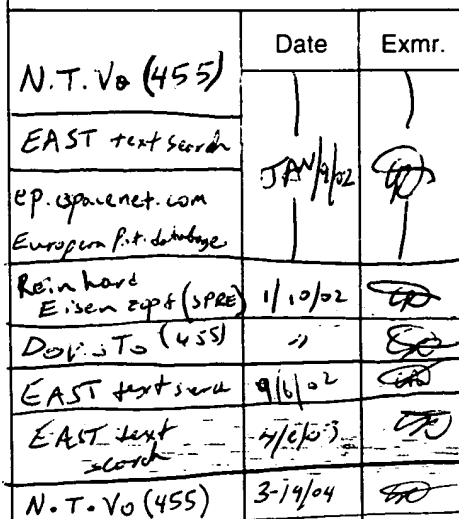 Date Exmr.
N.T. Vo (455)
EAST text search
JAN/9/02
ep.espacenet.com
European Pat. database
Reinhard
Eisenzopf (SPRE) 1/10/02
Doris To (455) "
EAST text search 9/6/02
EAST text
search
N.T. Vo (455) 3-19/04